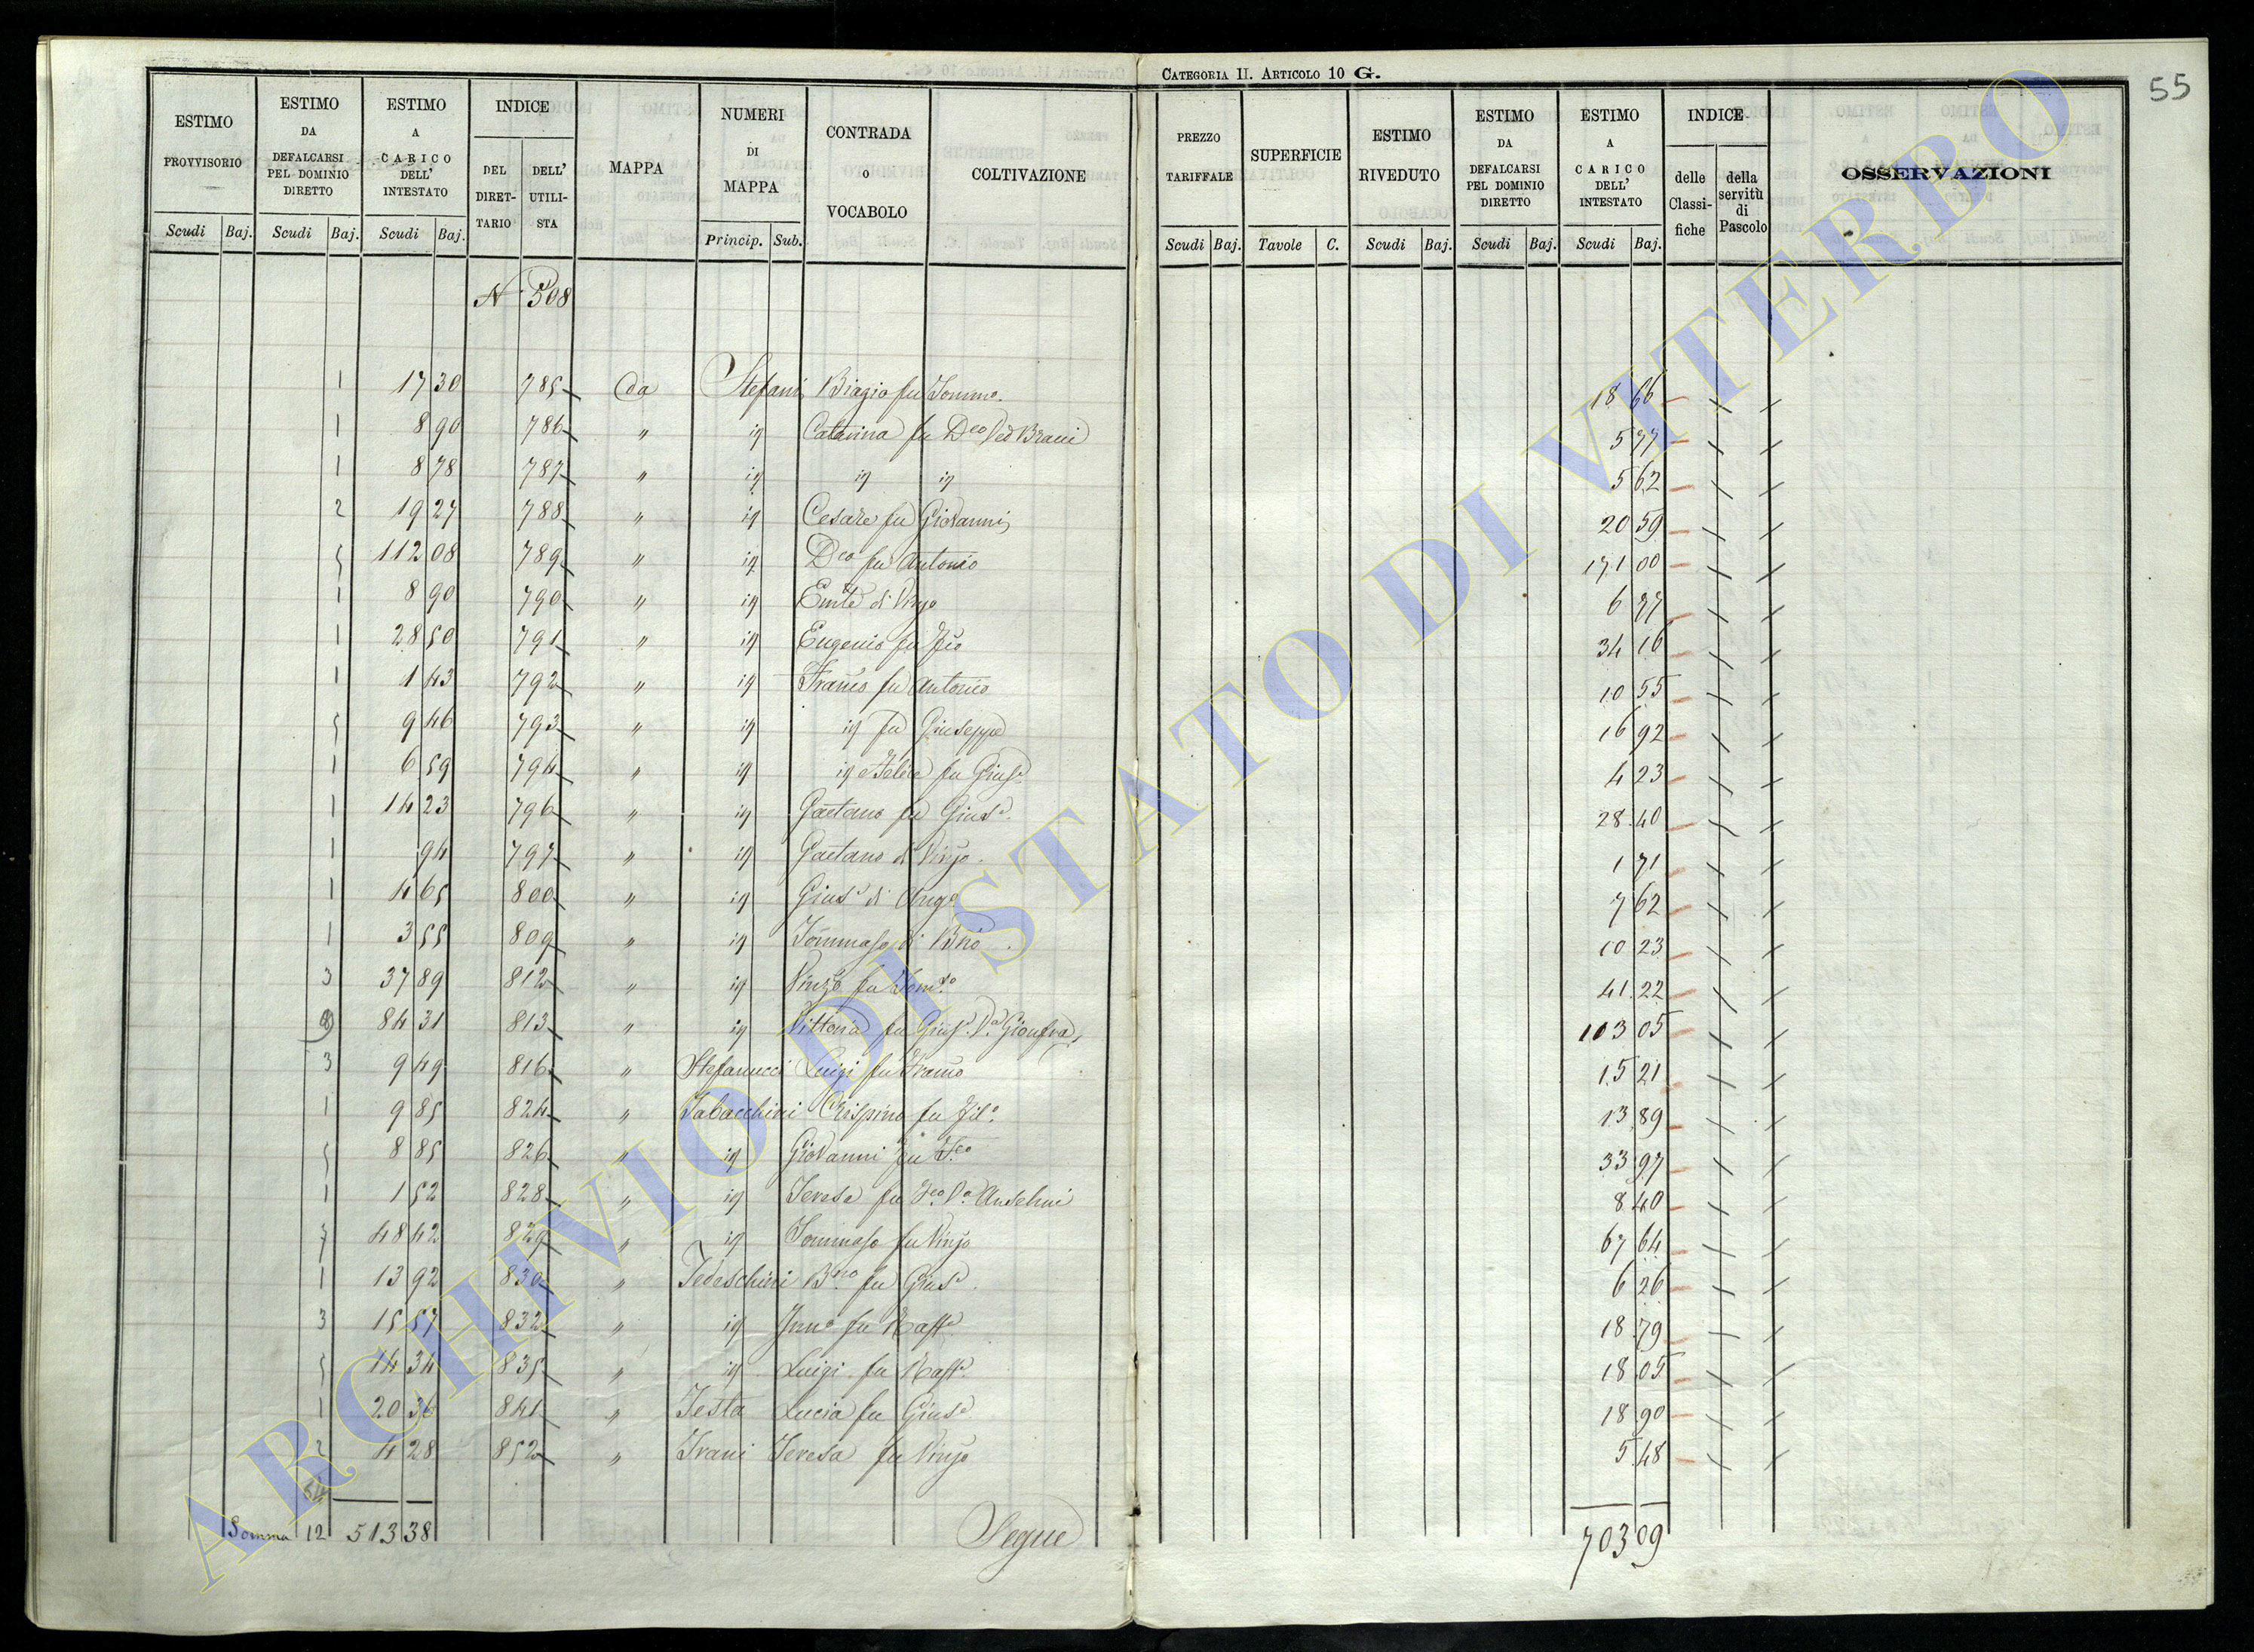 CATEGORIA II. ARTICOLO 10 G.
55
ESTIMO PROVVISORIO
ESTIMO DA DEFALCARSI PEL DOMINIO DIRETTO
ESTIMO A CARICO DELL' INTESTATO
INDICE
DEL DIRET-TARIO
DELL' UTILI-STA
MAPPA
NUMERI DI MAPPA
CONTRADA o VOCABOLO
COLTIVAZIONE
PREZZO TARIFFALE
SUPERFICIE
ESTIMO RIVEDUTO
ESTIMO DA DEFALCARSI PEL DOMINIO DIRETTO
ESTIMO A CARICO DELL' INTESTATO
INDICE
delle Classi-fiche
della servitù di Pascolo
OSSERVAZIONI
Scudi Baj. Scudi Baj. Scudi Baj. Princip. Sub. Scudi Baj. Tavole C. Scudi Baj. Scudi Baj. Scudi Baj.
N. 508
1 17 30 785 Cda Stefani Biagio fu Tommo. 18 66
1 8 90 786 " id Catarina fu Dco Ved Brani 5 77
1 8 78 787 " id id id 5 62
2 19 27 788 " id Cesare fu Giovanni 20 59
5 112 08 789 " id Dco fu Antonio 171 00
1 8 90 790 " id di Vinzo 6 77
1 28 50 791 " id Eugenio fu 34 16
1 1 43 792 " id Franco fu Antonio 10 55
5 9 46 793 " id id fu Giuseppe 16 92
1 6 59 794 " id id e Felice fu Giuse 4 23
1 14 23 796 " id Gaetano fu Giuse. 28 40
1 94 797 " id Gaetano di Vinzo. 1 71
1 4 65 800 " id Giuse di Ango 7 62
1 3 55 809 " id Tommaso di Bno. 10 23
3 37 89 812 " id Vinzo fu Domco 41 22
84 31 813 " id Vittoria fu Giuse. Va Gionfra 103 05
3 9 49 816 " Stefanucci Luigi fu Franco 15 21
1 9 85 824 " Tabacchini Crispino fu Filo 13 89
5 8 85 826 " id Giovanni fu Fco 33 97
1 1 52 828 " id Teresa fu Fco Va Anselmi 8 40
48 42 829 " id Tommaso fu Vinzo 67 64
1 13 92 830 " Tedeschini Bno fu Giuse. 6 26
3 15 57 832 " id fu Raffe 18 79
5 14 34 835 " id Luigi fu Raffe 18 05
1 20 36 841 " Testa Lucia fu Giuse 18 90
2 4 28 852 " Trani Teresa fu Vinzo 5 48
Somma 12 513 38 Segue 703 09
ARCHIVIO DI STATO DI VITERBO